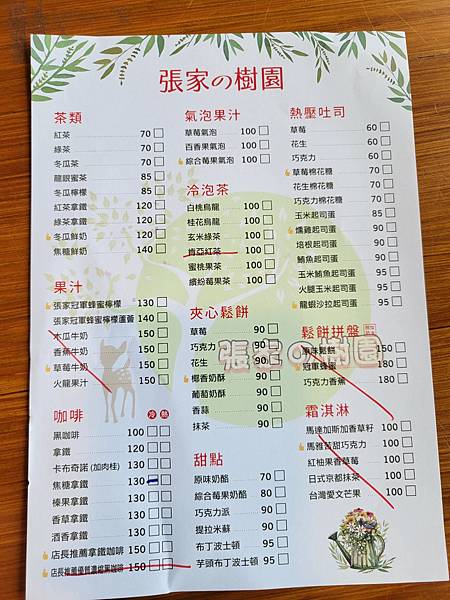 張家の樹園
茶類
紅茶 70
綠茶 70
冬瓜茶 70
龍眼蜜茶 85
冬瓜檸檬 85
紅茶拿鐵 120
綠茶拿鐵 120
冬瓜鮮奶 120
焦糖鮮奶 140
果汁
張家冠軍蜂蜜檸檬 130
張家冠軍蜂蜜檸檬蘆薈 140
木瓜牛奶 150
香蕉牛奶 150
草莓牛奶 150
火龍果汁 150
咖啡 冷 熱
黑咖啡 100
拿鐵 120
卡布奇諾 (加肉桂) 130
焦糖拿鐵 130
榛果拿鐵 130
香草拿鐵 130
酒香拿鐵 130
店長推薦拿鐵咖啡 150
店長推薦優質濃縮黑咖啡 150
氣泡果汁
草莓氣泡 100
百香果氣泡 100
綜合莓果氣泡 100
冷泡茶
白桃烏龍 100
桂花烏龍 100
玄米綠茶 100
肯亞紅茶 100
蜜桃果茶 100
繽紛莓果茶 100
夾心鬆餅
草莓 90
巧克力 90
花生 90
椰香奶酥 90
葡萄奶酥 90
香蒜 90
抹茶 90
甜點
原味奶酪 70
綜合莓果奶酪 80
巧克力派 90
提拉米蘇 90
布丁波士頓 95
芋頭布丁波士頓 95
熱壓吐司
草莓 60
花生 60
巧克力 60
草莓棉花糖 70
花生棉花糖 70
巧克力棉花糖 70
玉米起司蛋 85
燻雞起司蛋 90
培根起司蛋 90
鮪魚起司蛋 90
玉米鮪魚起司蛋 95
火腿玉米起司蛋 95
龍蝦沙拉起司蛋 95
鬆餅拼盤
原味鬆餅 150
冠軍蜂蜜 180
巧克力香蕉 180
霜淇淋
馬達加斯加香草籽 100
馬雅苦甜巧克力 100
紅柚果香草莓 100
日式京都抹茶 100
台灣愛文芒果 100
張家の樹園